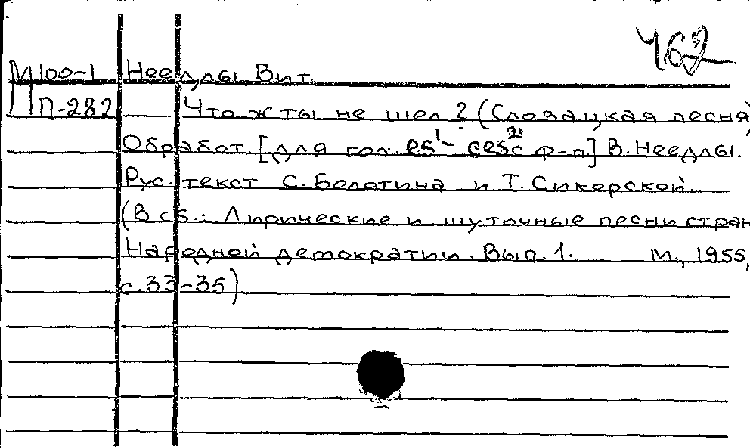 462
М100-1 Неедлы Вит.
П-282 Что ж ты не шел? (Словацкая песня)
Обработ. [для гол. es¹- ces² с ф-п] В. Неедлы.
Рус. текст С. Болотина и Т. Сикорской
(В сб.: Лирические и шуточные песни стран
Народной демократии. Вып. 1. М., 1955,
с.33-35)